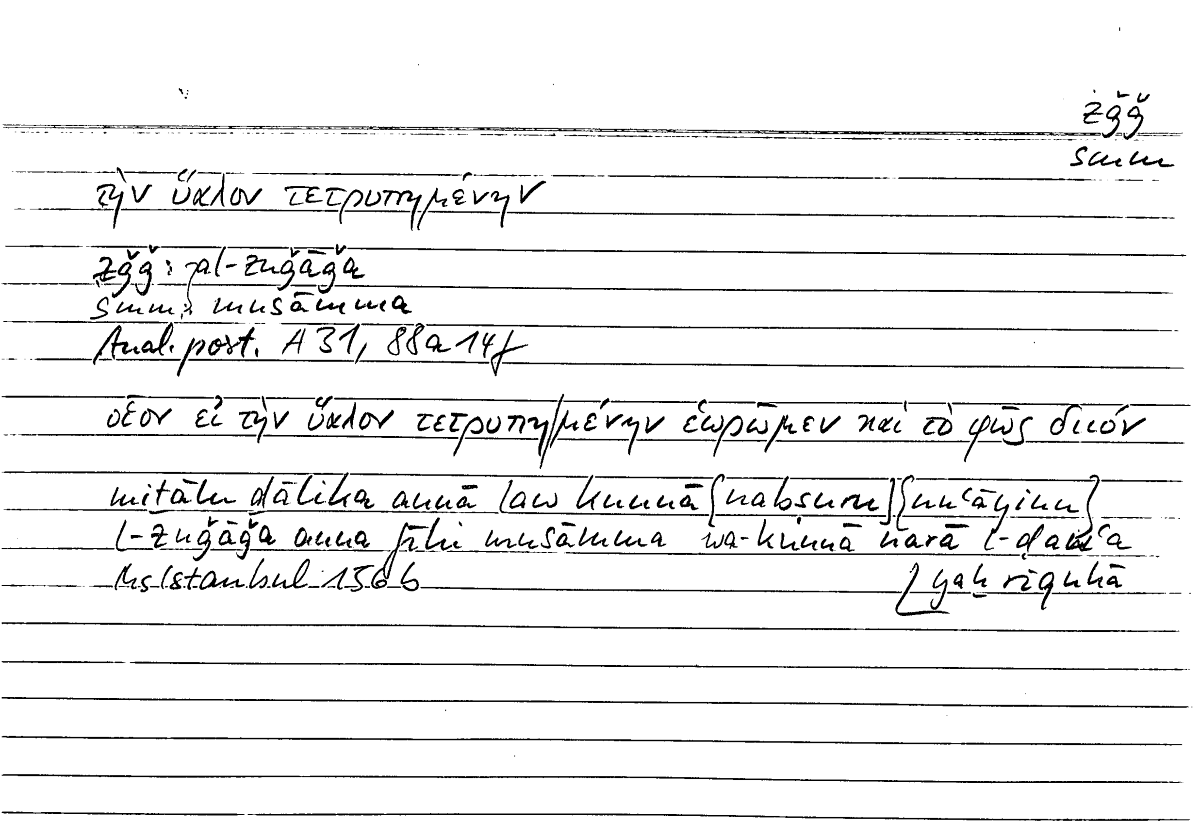 zǧǧ
smm
τὴν ὕαλον τετρυπημένην
zǧǧ: al-zuǧāǧa
smm: musāmma
Anal. post. A 31, 88a 14f
οἷον εἰ τὴν ὕαλον τετρυπημένην ἑωρῶμεν καὶ τὸ φῶς διιόν
miṯālu ḏālika annā law kunnā {nabṣuru} {nuʿāyinu}
l-zuǧāǧa anna fīhi musāmma wa-kunnā narā l-ḍawʾa
Ms Istanbul 156b yaḫriquhā